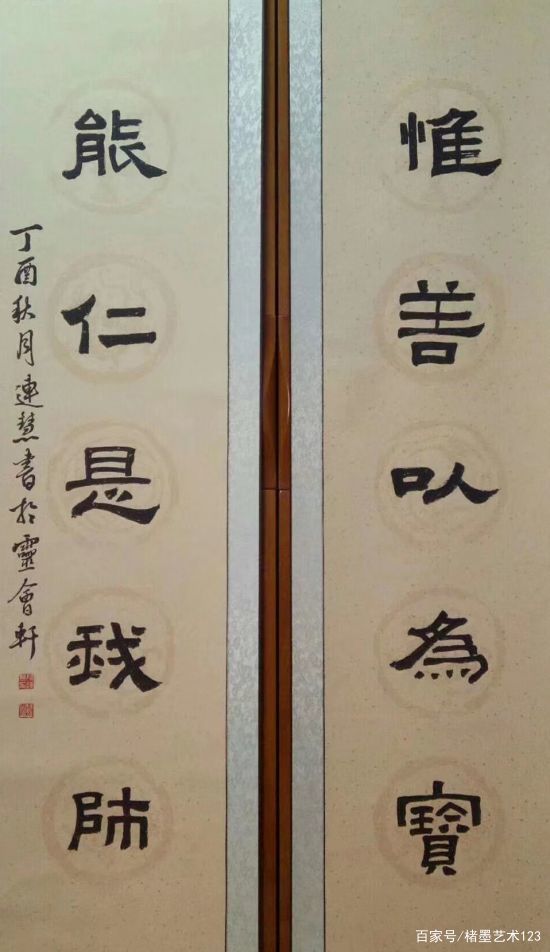 惟善以為寶
能仁是我師
丁酉秋月連慧書於靈會軒
百家号/楮墨艺术123